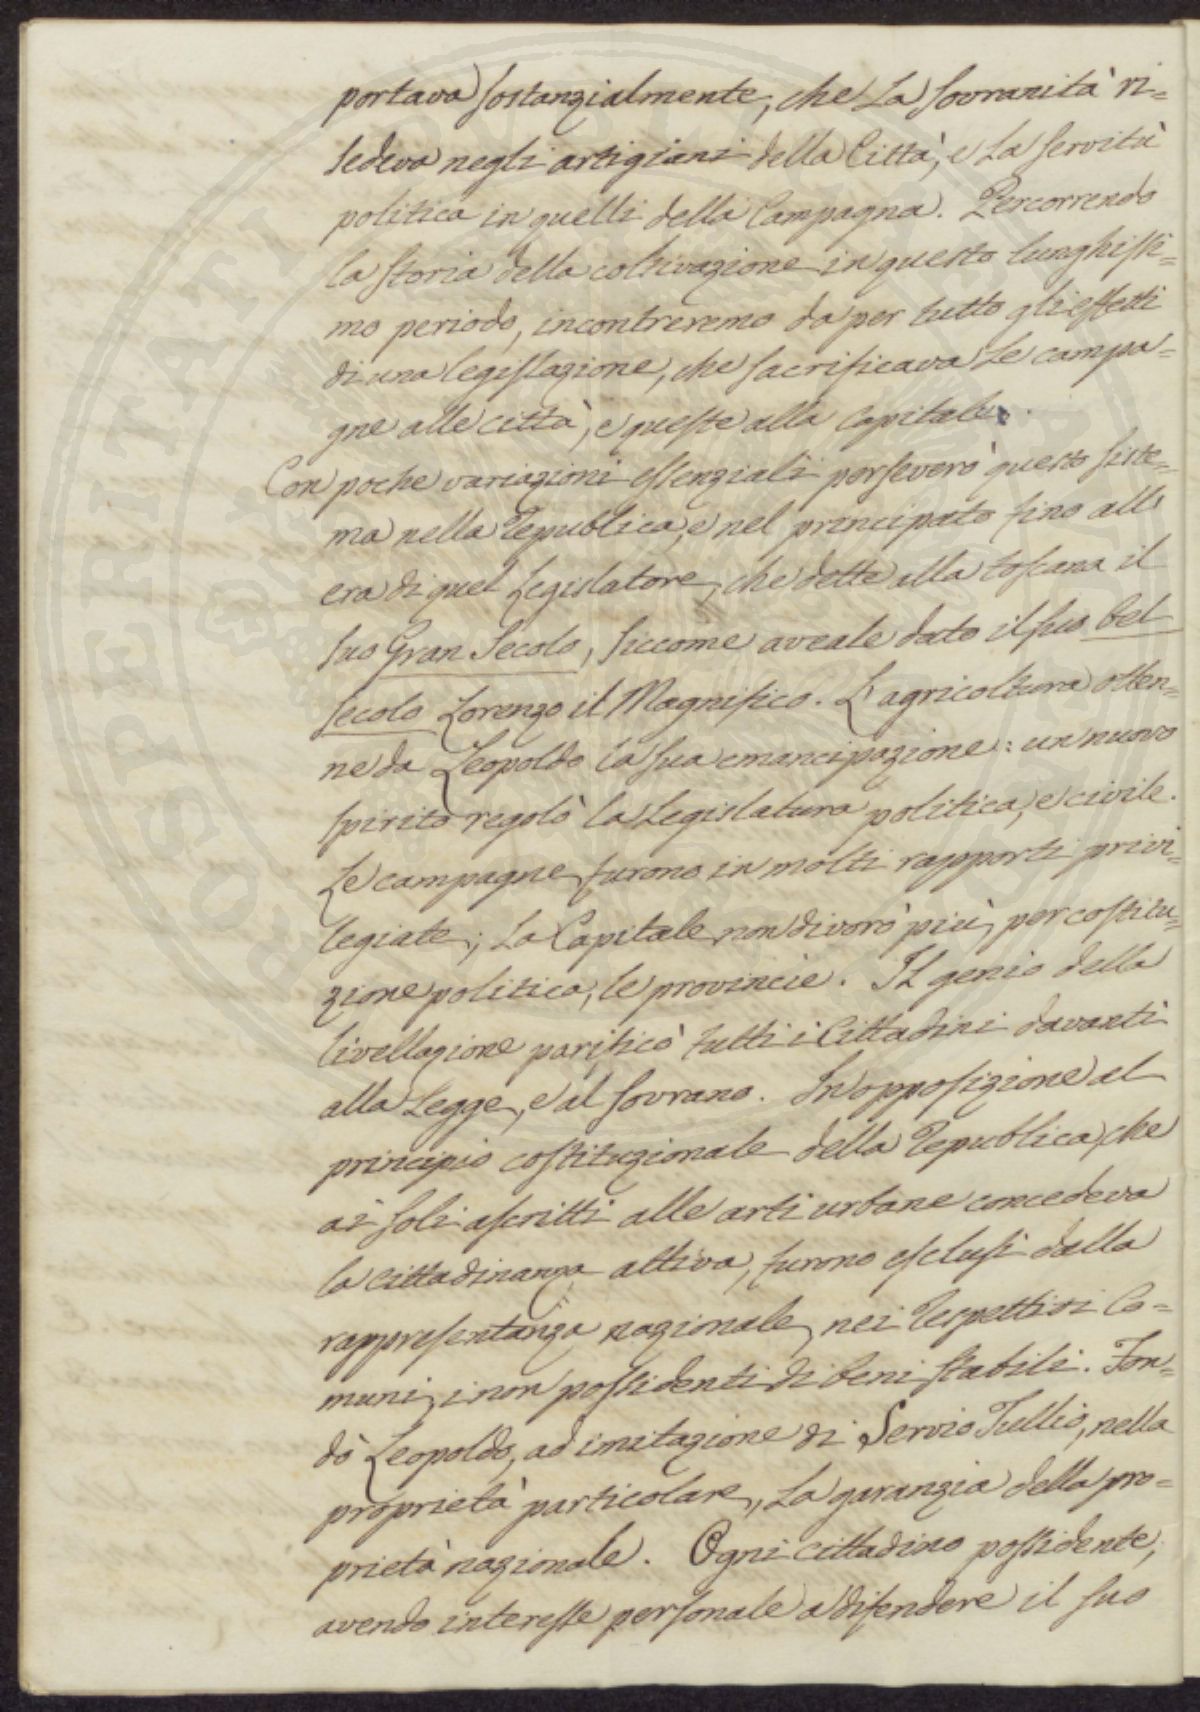 portava sostanzialmente, che La Sovranità ri=
sedeva negli artigiani della Città, e La servitù
politica in quelli della Campagna. Percorrendo
la storia della coltivazione in questo lunghissi=
mo periodo, incontreremo da per tutto gli effetti
di una legislazione, che sacrificava Le campa=
gne alle città, e queste alla Capitale.
Con poche variazioni essenziali perseverò questo siste=
ma nella Republica, e nel principato fino all'
era di quel Legislatore, che dette alla toscana il
suo Gran Secolo, siccome aveale dato il suo bel
secolo Lorenzo il Magnifico. L'agricoltura otten=
ne da Leopoldo la sua emancipazione: un nuovo
spirito regolò la Legislatura politica, e civile.
Le campagne furono in molti rapporti privi=
legiate; La Capitale non divorò più, per costitu=
zione politica, le provincie. IL genio della
livellazione parificò tutti i Cittadini davanti
alla Legge, e al Sovrano. In opposizione al
principio costituzionale della Republica, che
ai soli ascritti alle arti urbane concedeva
la cittadinanza attiva, furono esclusi dalla
rappresentanza nazionale, nei Respettivi Co=
muni, i non possidenti di beni stabili. Fon=
dò Leopoldo, ad imitazione di Servio Tullio, nella
proprietà particolare, La garanzia della pro=
prietà nazionale. Ogni cittadino possidente,
avendo interesse personale a difendere il suo
PROSPERITATI PUBLICAE AUGENDAE